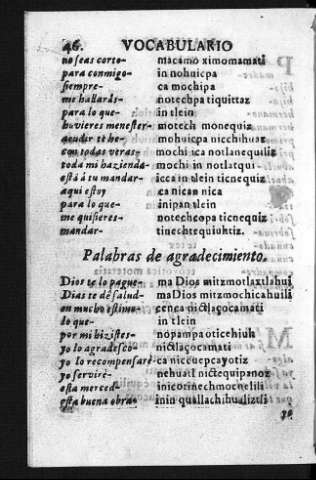 46. VOCABULARIO
no seas corto- macamo ximomamati
para conmigo- in nohuicpa
siempre- ca mochipa
me hallarás- notechpa tiquittaz
para lo que- in tlein
huvieres menester- motech monequiz
acudir te he- mohuicpa nicchihuaz
con todas veras- mochi ica notlanequiliz
toda mi hazienda- mochi in notlatqui
está á tu mandar- icca in tlein ticnequiz
aqui estoy ca nican nica
para lo que- inipan tlein
me quisieres- notechcopa ticnequiz
mandar- tinechtequiuhtiz.
Palabras de agradecimiento.
Dios te lo pague- ma Dios mitzmotlaxtlahui
Dias te dé salud- ma Dios mitzmochicahuili
en mucho estimo- cenca nictlaçocamati
lo que- in tlein
por mi hizistes- nopampa oticchiuh
yo lo agradesco- nictlaçocamati
yo lo recompensaré- ca niccuepcayotiz
yo serviré- nehuatl nictequipanoz
esta merced- inicorinechmocnelili
esta buena obra- inin quallachihualiztli
yo